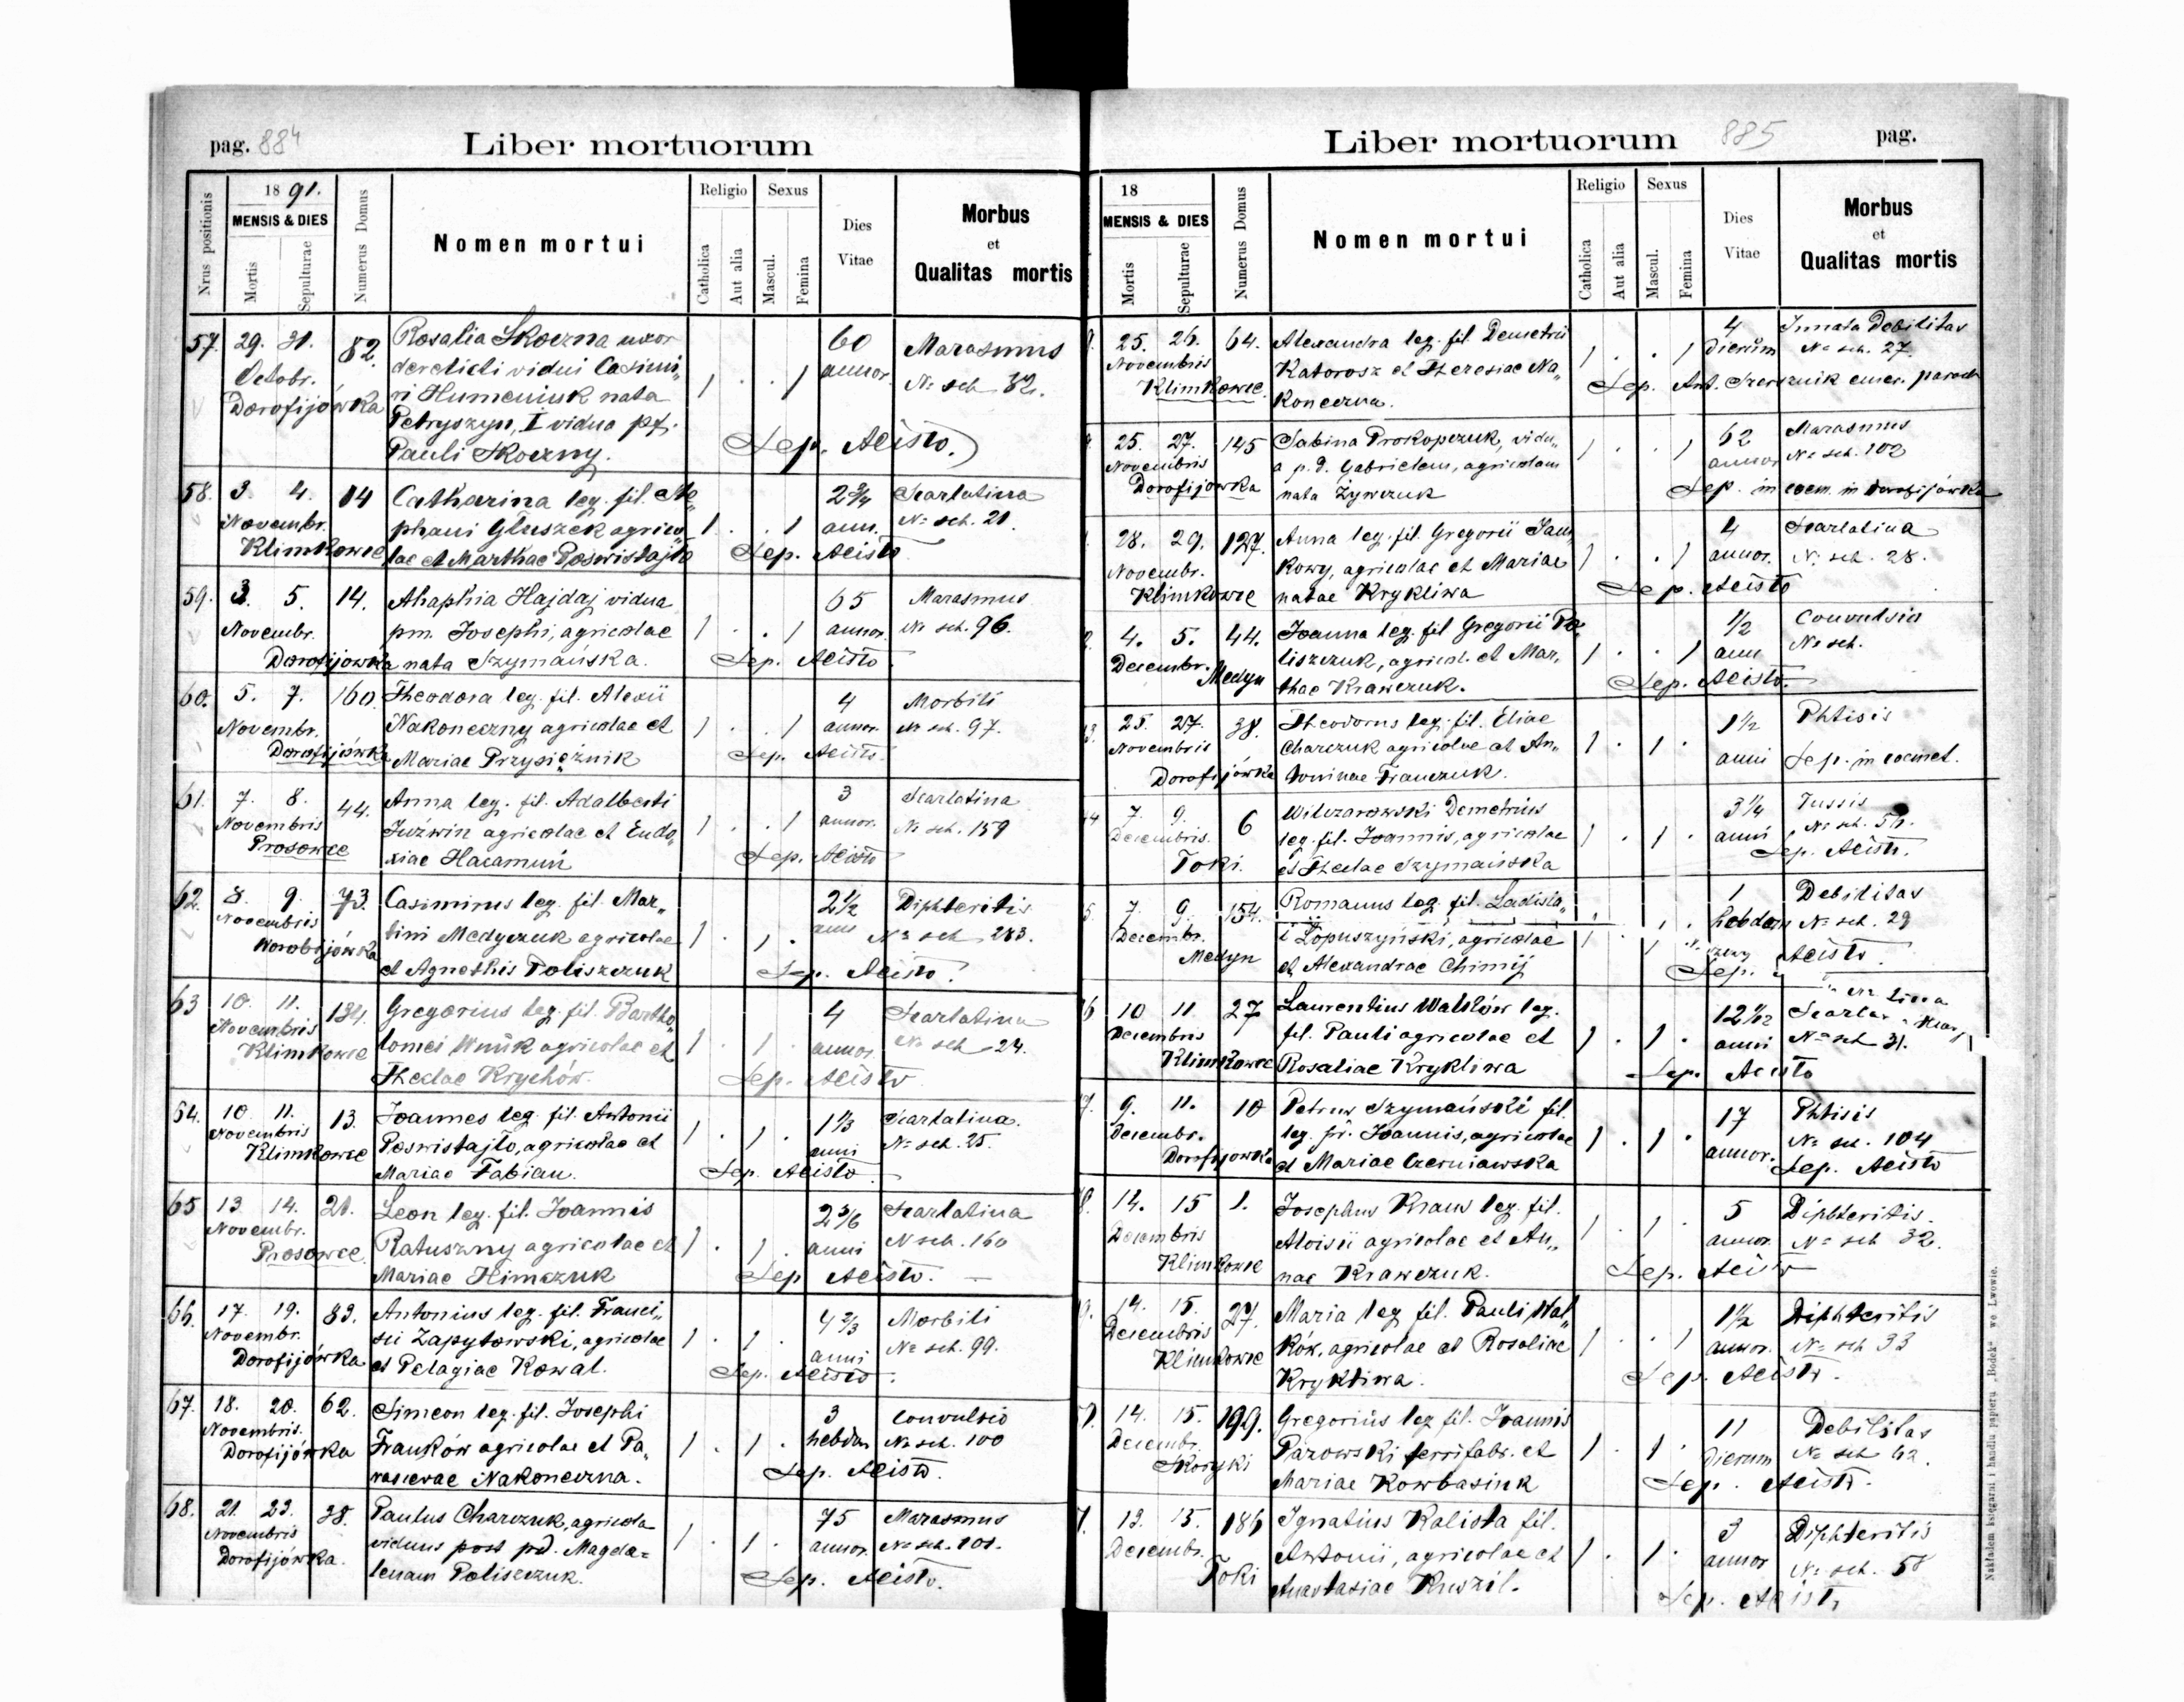 pag. 884
Liber mortuorum
Nrus positionis
1891.
MENSIS & DIES
Mortis
Sepulturae
Numerus Domus
Nomen mortui
Religio
Catholica
Aut alia
Sexus
Mascul.
Femina
Dies
Vitae
Morbus
et
Qualitas mortis
57. 29. 31. 82. Rosalia Skoczna uxor 60 Marasmus
Octobr. derelicti vidui Casimi„ annor. № sch 82.
Dorofijówka ri Humeniuk nata 1 . . 1
Petryszyn, I vidua pf.
Pauli Skoczny. Sep. Aeisto.
58. 3. 4. 14 Catharina leg. fil. Ste„ 2¾ Scarlatina
Novembr. phani Głuszek agrico„ 1 . . 1 ann. № sch. 21.
Klimkowce lae et Marthae Poswistajło Sep. Aeisto
59. 3. 5. 14. Ahaphia Hajdaj vidua 65 Marasmus
Novembr. pm. Josephi, agricolae 1 . . 1 annor. № sch. 96.
Dorofijowka nata Szymańska. Sep. Aeisto.
60. 5. 7. 160. Theodora leg. fil. Alexii 4 Morbili
Novembr. Nakoneczny agricolae et 1 . . 1 annor. № sch. 97.
Dorofijówka Mariae Przysiężnik Sep. Aeisto.
61. 7. 8. 44. Anna leg. fil. Adalberti 3 Scarlatina
Novembris Juźwin agricolae et Eudo„ 1 . . 1 annor. № sch. 159
Prosowce xiae Hacamuń Sep. Aeisto
62. 8. 9. 73. Casimirus leg. fil. Mar„ 2½ Diphteritis
Novembris tini Medyczuk agricolae 1 . 1 . № sch 283.
Worobijówka et Agnethis Poliszczuk Sep. Aeisto.
63 10. 11. 134. Gregorius leg. fil. Bartho„ 4 Scarlatina
Novembris lomei Wnuk agricolae et 1 . 1 . annor. № sch 24.
Klimkowce Theclae Krychów. Sep. Aeisto
64. 10. 11. 13. Joannes leg. fil. Antonii 1⅓ Scarlatina.
Novembris Poswistajło, agricolae et 1 . 1 . anni № sch. 25.
Klimkowce Mariae Fabian. Sep. Aeisto
65 13. 14. 21. Leon leg. fil. Joannis 2 3/6 Scarlatina
Novembr. Ratuszny agricolae et 1 . 1 . anni № sch. 160
Prosowce Mariae Himczuk Sep Aeisto. —
66. 17. 19. 83. Antonius leg. fil. Franci„ 4⅔ Morbili
Novembr. sci Zapytowski, agricolae 1 . 1 . anni № sch. 99.
Dorofijówka et Pelagiae Kowal. Sep. Aeisto.
67. 18. 20. 62. Simeon leg. fil. Josephi 3 Convulsio
Novembris. Franków agricolae et Pa„ 1 . 1 . hebdom № sch. 100
Dorofijówka rascevae Nakoneczna. Sep. Aeisto.
68. 21. 23. 38. Paulus Charczuk, agricola 75 Marasmus
Novembris viduus post pd. Magda= 1 . 1 . annor. № sch. 101.
Dorofijówka. lenam Poliszczuk. Sep. Aeisto.
Liber mortuorum
885
pag.
18
MENSIS & DIES
Mortis
Sepulturae
Numerus Domus
Nomen mortui
Religio
Catholica
Aut alia
Sexus
Mascul.
Femina
Dies
Vitae
Morbus
et
Qualitas mortis
25. 26. 64. Alexandra leg. fil. Demetrii 4 Innata Debilitas
Novembris Katorosz et Theresiae Na„ 1 . . 1 dierum № sch. 27.
Klimkowce. koneczna. Sep. Ant. Szersznik emer. paroch
25. 27. 145 Sabina Prokopczuk, vidu„ 62 Marasmus
Novembris a p. d. Gabrielem, agricolam 1 . . 1 annor № sch. 102
Dorofijowka nata Żywczuk Sep. in coem. in Dorofijówka
28. 29. 127. Anna leg. fil. Gregorii Jan„ 4 Scarlatina
Novembr. kowy, agricolae et Mariae 1 . . 1 annor. № sch. 28.
Klimkowce natae Krykliwa Sep. Aeisto
4. 5. 44. Joanna leg. fil Gregorii Po„ ½ Convulsio
Decembr. liszczuk, agricol. et Mar„ 1 . . 1 ann № sch.
Medyn thae Krawczuk. Sep. Aeisto.
25. 27. 38. Theodorus leg. fil. Eliae 1½ Phtisis
Novembris Charczuk agricolae et An„ 1 . 1 . anni Sep. in coemet.
Dorofijówka toninae Franczuk.
7. 9. 6 Wilczarowski Demetrius 3¼ Tussis
Decembris. leg. fil. Joannis, agricolae 1 . 1 . anni № sch.
Toki. et Theclae Szymańska Sep. Aeisto.
7. 9. 154. Romanus leg. fil. Ladisla„ 1 Debilitas
Decembr. i Łopuszyński, agricolae 1 . 1 . hebdom № sch. 29
Medyn et Alexandrae Chimij Sep. Aeisto.
10 11. 27 Laurentius Walków leg. 12 1/12
Decembris fil. Pauli agricolae et 1 . 1 . anni № sch 31.
Klimkowce Rosaliae Krykliwa Sep. Aeisto
9. 11. 10 Petrus Szymański fil. 17 Phtisis
Decembr. leg. p. Joannis, agricolae 1 . 1 . annor. № sch. 104
Dorofijowka et Mariae Czerniawska Sep. Aeisto
14. 15 1. Josephus Knaus leg. fil. 5 Diphteritis.
Decembris Aloisii agricolae et An„ 1 . 1 . annor. № sch 32.
Klimkowce nae Krawczuk. Sep. Aeisto
14. 15. 27. Maria leg. fil. Pauli Wal„ 1½ Diphteritis
Decembris ków, agricolae et Rosaliae 1 . . 1 annor. № sch 33
Klimkowce Krykliwa. Sep. Aeisto.
14. 15. 199. Gregorius leg. fil. Joannis 11 Debilitas
Decembr. Pazowski ferrifabr. et 1 . 1 . dierum № sch 62.
Skoryki Mariae Kowbasiuk Sep. Aeisto.
13. 15. 186 Ignatius Kalista fil. 3 Diphteritis
Decembr. Antonii, agricolae et 1 . 1 . annor № sch. 58
Toki Anastasiae Kuzil. Sep. Aeisto
Nakładem księgarni i handlu papieru „Bodek“ we Lwowie.